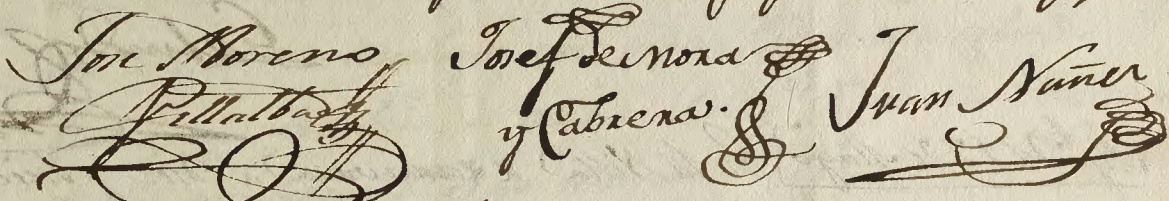 Jose Moreno
Villalba
Josef de Mora
y Cabrera.
Juan Nuñez